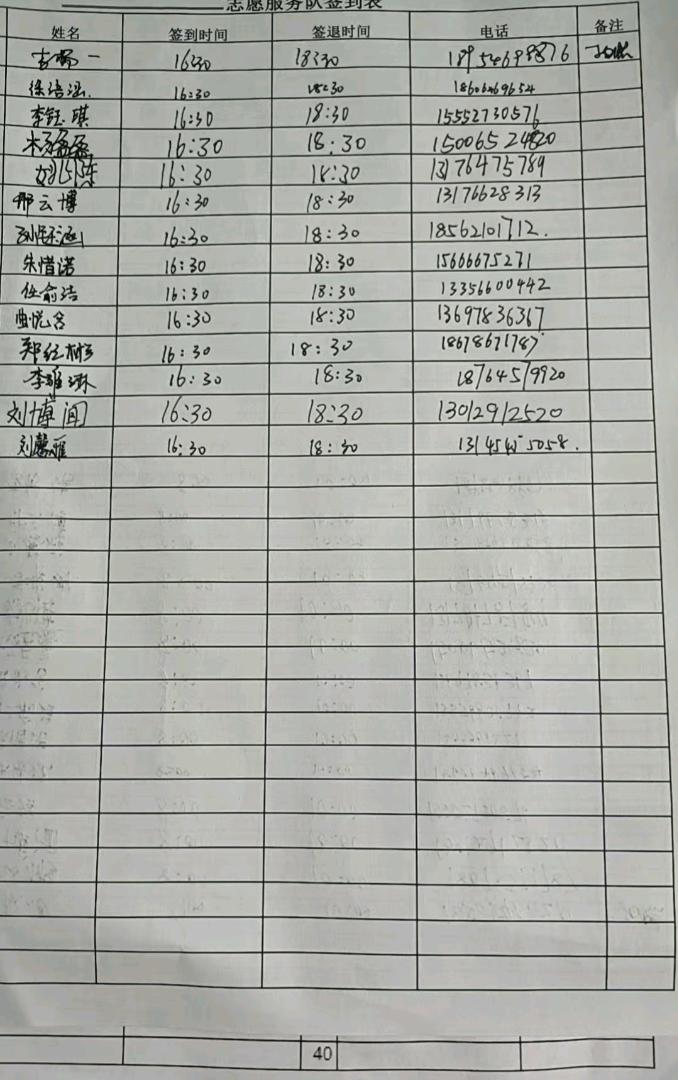 志愿服务队签到表
姓名 签到时间 签退时间 电话 备注
16:30 18:30 18954698876
徐语涵 16:30 18:30 18606469654
李钰琪 16:30 18:30 15552730576
杨磊磊 16:30 18:30
16:30 18:30 13176475789
邢云博 16:30 18:30 13176628313
16:30 18:30 18562101712.
朱惜诺 16:30 18:30 15666675271
任俞洁 16:30 18:30 13356600442
曲悦含 16:30 18:30 13697836367
16:30 18:30 18678671787
李雅琳 16:30 18:30 18764579920
刘博闻 16:30 18:30 13012912520
刘馨雅 16:30 18:30 13145455058.
40